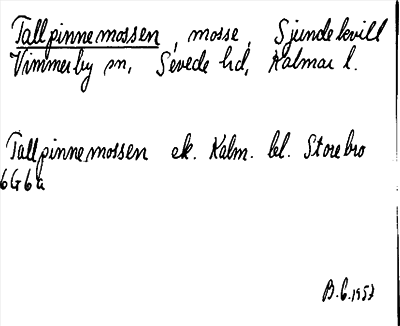 Tallpinnemossen, mosse, Sjundekvill
Vimmerby sn, Sevede hd, Kalmar l.
Tallpinnemossen ek. Kalm. bl. Storebro
6G6a
B.G.1957